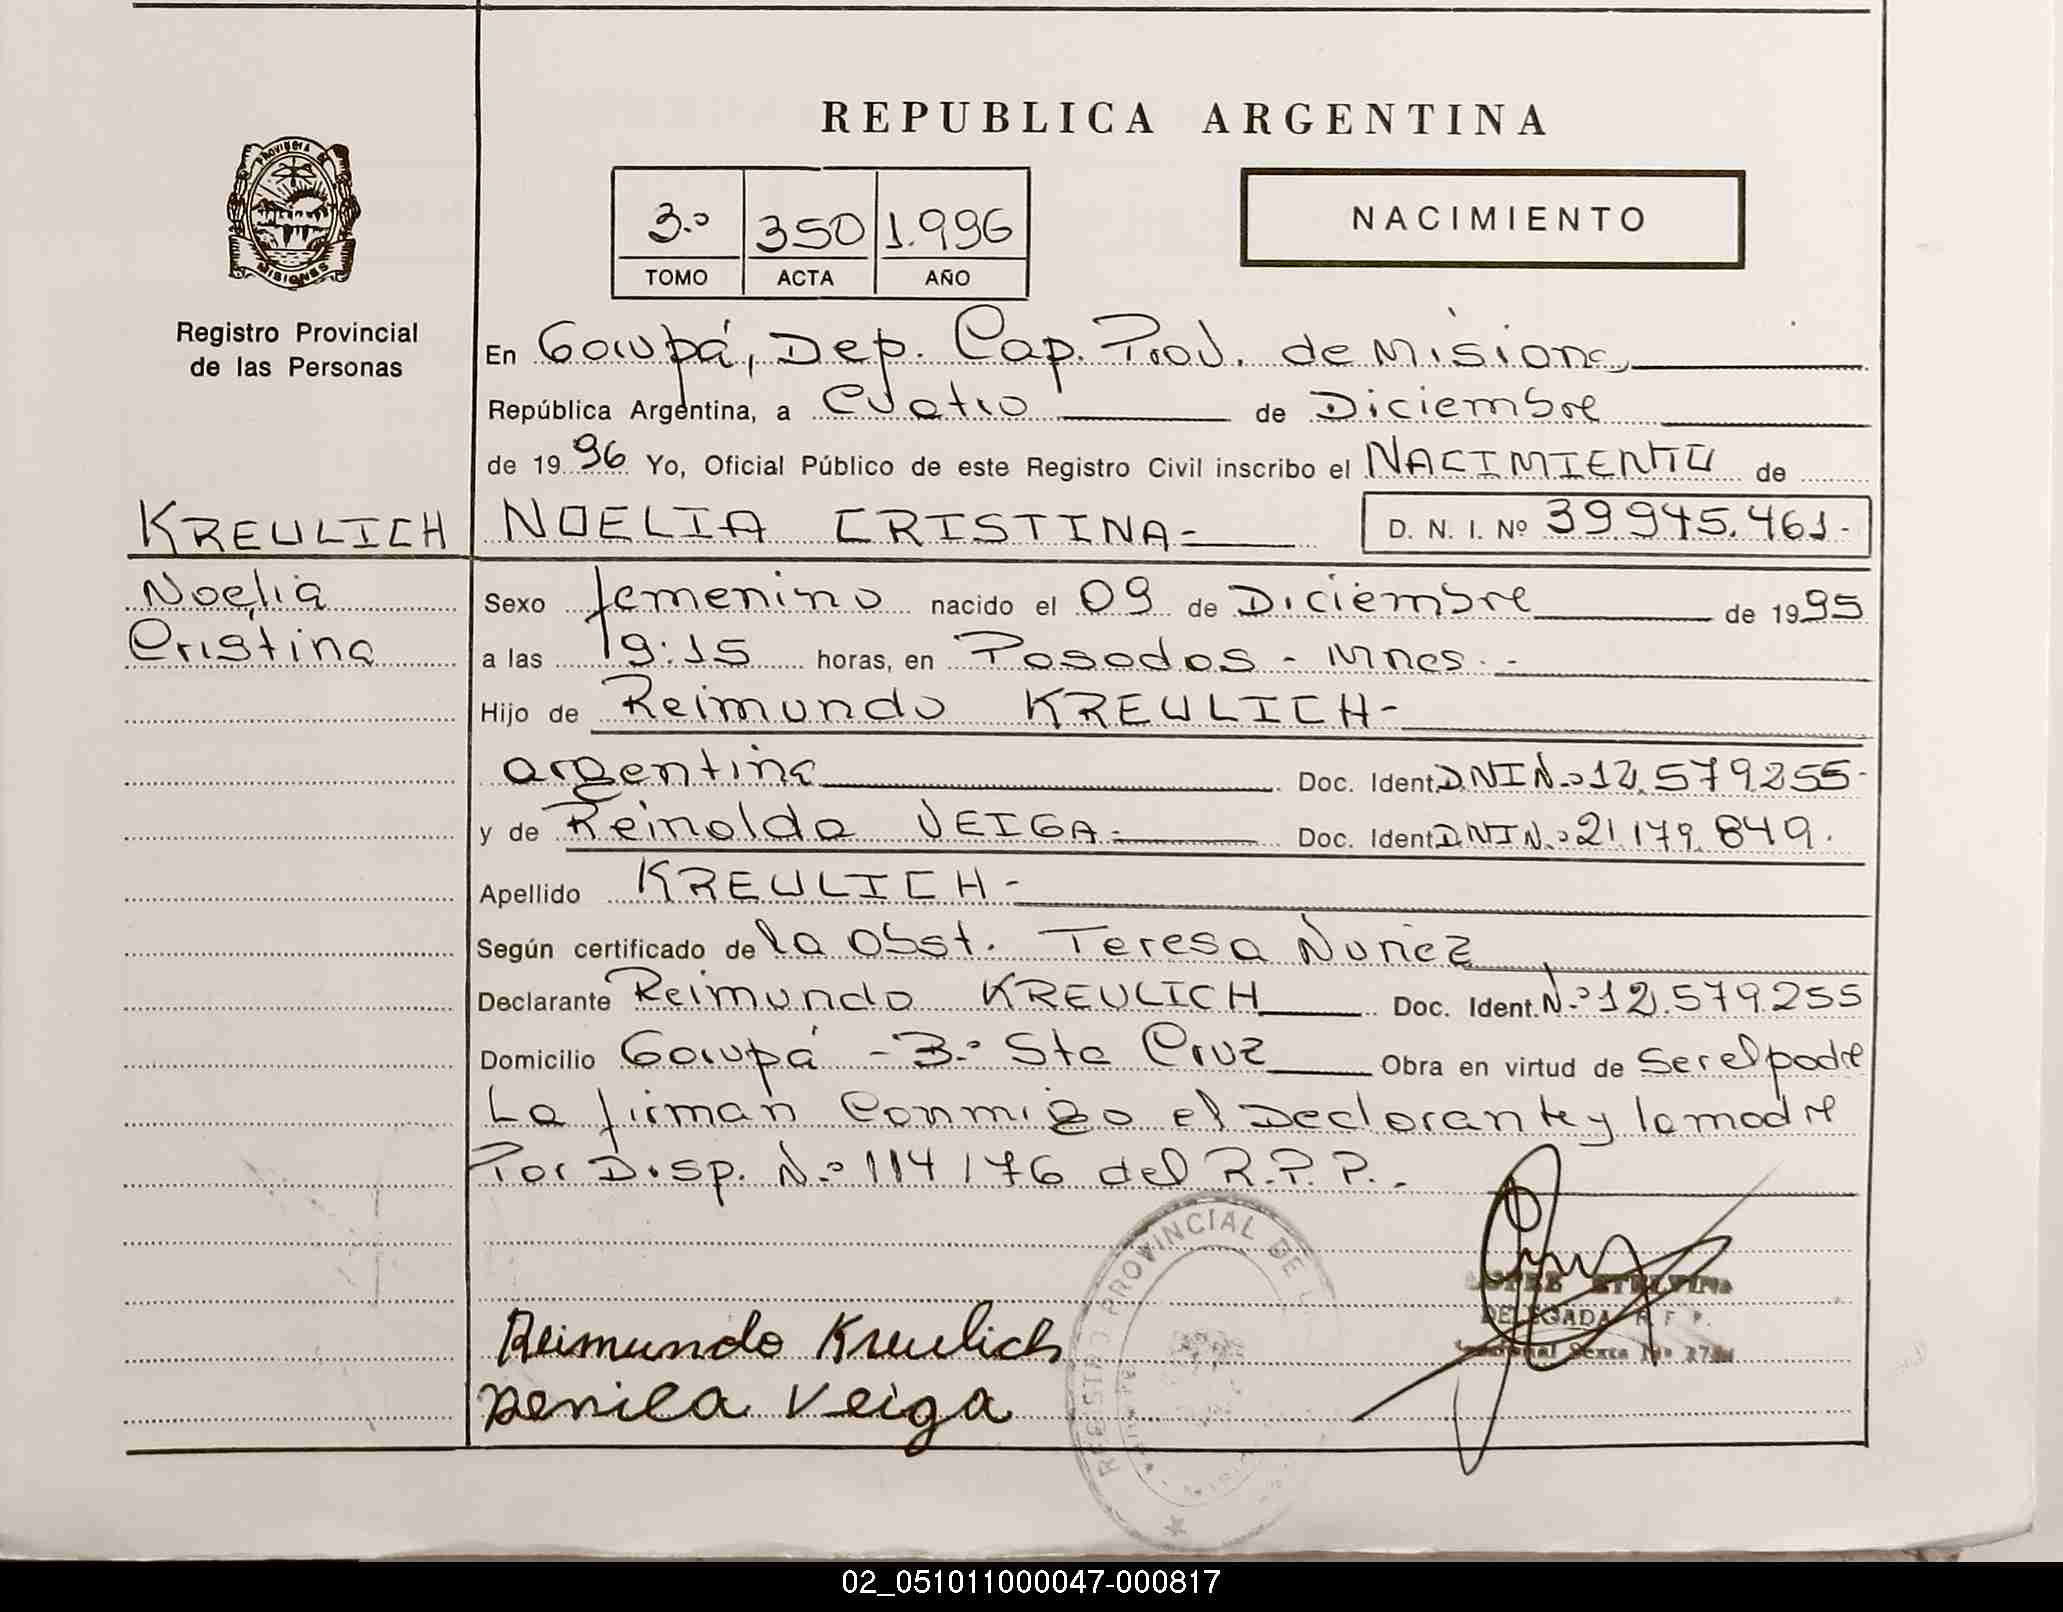 REPUBLICA ARGENTINA
PROVINCIA DE
MISIONES
Registro Provincial
de las Personas
3.º 350 1.996
TOMO ACTA AÑO
NACIMIENTO
En Garupá, Dep. Cap. Prov. de Misiones
República Argentina, a Cuatro de Diciembre
de 1996 Yo, Oficial Público de este Registro Civil inscribo el NACIMIENTO de
KREULICH NOELIA CRISTINA= D. N. I. Nº 39.945.461-
Noelia
Cristina
Sexo femenino nacido el 09 de Diciembre de 1995
a las 19:15 horas, en Posadas - Mnes.-
Hijo de Reimundo KREULICH-
argentina Doc. Ident. DNI N.º 12.579.255-
y de Reinalda VEIGA= Doc. Ident. DNI N.º 21.179.849.
Apellido KREULICH-
Según certificado de la Obst. Teresa Nuñez
Declarante Reimundo KREULICH Doc. Ident. N.º 12.579.255
Domicilio Garupá - B.º Sta Cruz Obra en virtud de Ser el padre
La firman Conmigo el Declarante y la madre
Por Disp. N.º 114/76 del R.P.P..
REGISTRO PROVINCIAL DE
DELEGADA R. P. P.
Reimundo Kreulich
Veiga
02_051011000047-000817